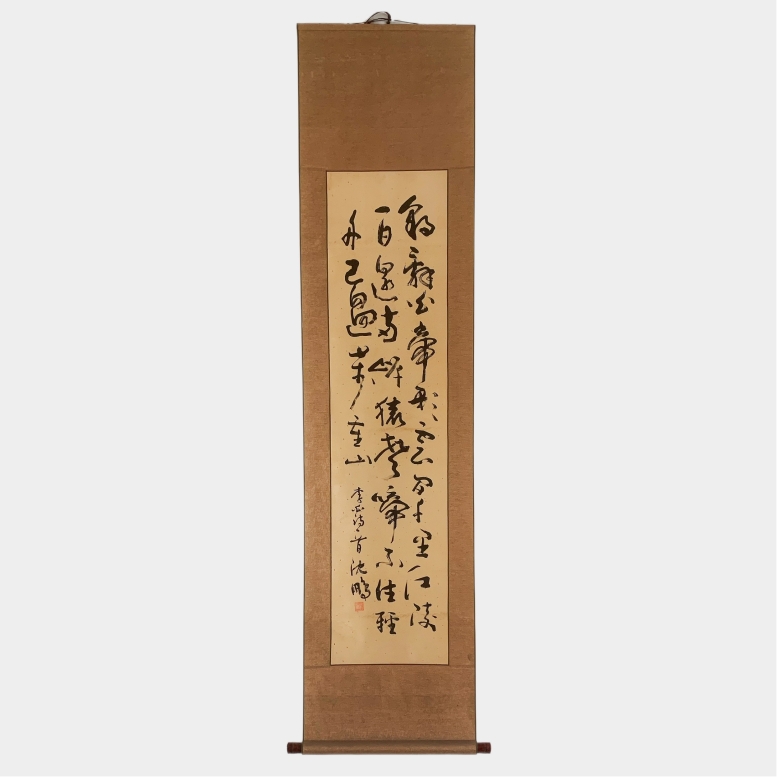 朝辭白帝彩雲間千里江陵
一日還兩岸猿聲啼不住輕
舟已過萬重山
李白詩一首沈鵬